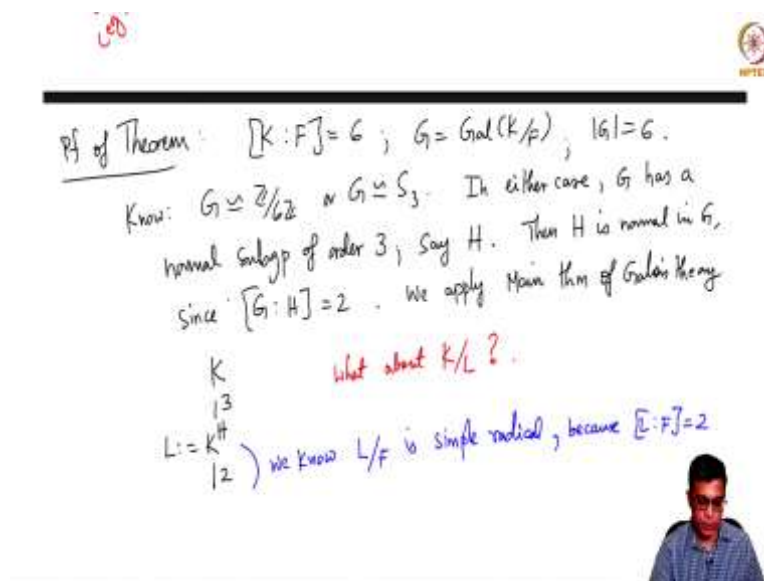 NPTEL
Pf of Theorem: [K:F]=6 ; G = Gal(K/F) ; |G|=6.
Know: G ≃ ℤ/6ℤ or G ≃ S₃. In either case, G has a
normal subgp of order 3, say H. Then H is normal in G,
since [G:H]=2. We apply Main thm of Galois theory
K What about K/L ?
| 3
L := K^H ) we know L/F is simple radical, because [L:F]=2
| 2